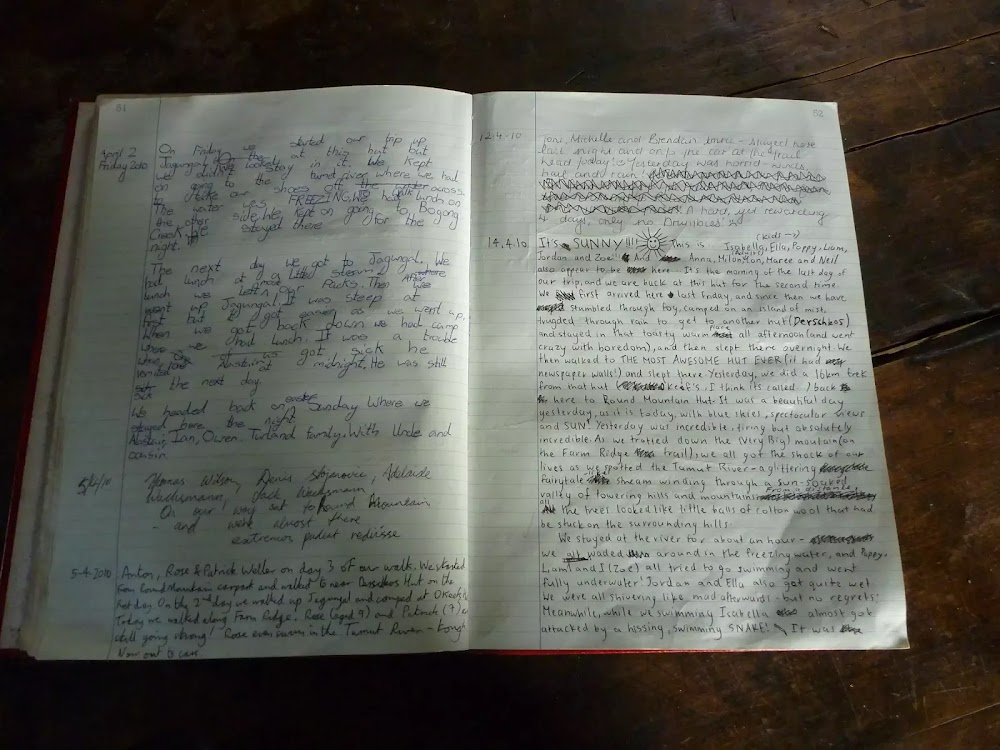 81
April 2
Friday 2010
On Friday we started our trip up
Jagungal. On the at this hut but
we didn't stay in it. We kept
on going to the river where we had
to take our shoes off across.
The water was FREEZING. We had lunch on
the other side. We kept on going to Bogong
Creek. We stayed there for the
night.
The next day we got to Jagungal. We
had lunch at a little stream. After
lunch we left our Packs. Then we
went up Jagungal. It was steep at
first but it got easier as we went up.
When we got back down we had camp
where we had lunch. It was a
got sick he
vomited at midnight. He was still
sick the next day.
We headed back on easter Sunday where we
stayed here the night.
Alastair, Ian, Owen. Turland family. With Uncle and
cousin.
5/4/10
Thomas Wilson, Denis Stojanovic, Adelaide
Wachsmann, Jack Wachsmann
On our way out to Round Mountain
- and were almost there
5-4-2010
Anton, Rose & Patrick Weller on day 3 of our walk. We started
from Round Mountain carpark and walked to near Derschkos Hut on the
first day. On the 2nd day we walked up Jagungal and camped at O'Keefe's
Today we walked along Farm Ridge. Rose (aged 9) and Patrick (7) are
still going strong! Rose even swam in the Tumut River - tough
Now out to cars
82
12.4.10
Toni, Michelle and Brendan here - stayed here
last night and on to the car at the trail
head today! Yesterday was horrid - winds
hail and rain!
A hard, yet rewarding
4 days, only no Brumbies!
14.4.10
It's SUNNY!!!! This is (kids →) Isabella, Ella, Poppy, Liam,
Jordan and Zoe! And Anna, Milonton, Maree and Neil
also appear to be here. It's the morning of the last day of
our trip, and we are back at this hut for the second time.
We first arrived here last Friday, and since then we have
stumbled through fog, camped on an island of mist,
trudged through rain to get to another hut (Derschkos)
and stayed in that toasty warm place all afternoon (and went
crazy with boredom), and then slept there overnight. We
then walked to THE MOST AWESOME HUT EVER (it had
newspaper walls!) and slept there. Yesterday, we did a 16km trek
from that hut ( Keef's, I think its called...) back
to here to Round Mountain Hut. It was a beautiful day
yesterday, as it is today, with blue skies, spectacular views
and SUN! Yesterday was incredible, tiring but absolutely
incredible. As we trotted down the (very Big) moutain (on
the Farm Ridge trail), we all got the shock of our
lives as we spotted the Tumut River - a glittering
fairytale stream winding through a sun-soaked
valley of towering hills and mountains. From a distance,
all the trees looked like little balls of cotton wool that had
be stuck on the surrounding hills.
We stayed at the river for about an hour -
we all waded around in the freezing water, and Poppy,
Liam and I (zoe) all tried to go swimming and went
fully underwater! Jordan and Ella also got quite wet
We were all shivering like mad afterwards - but no regrets!
Meanwhile, while we swimming Isabella almost got
attacked by a hissing, swimming SNAKE! It was